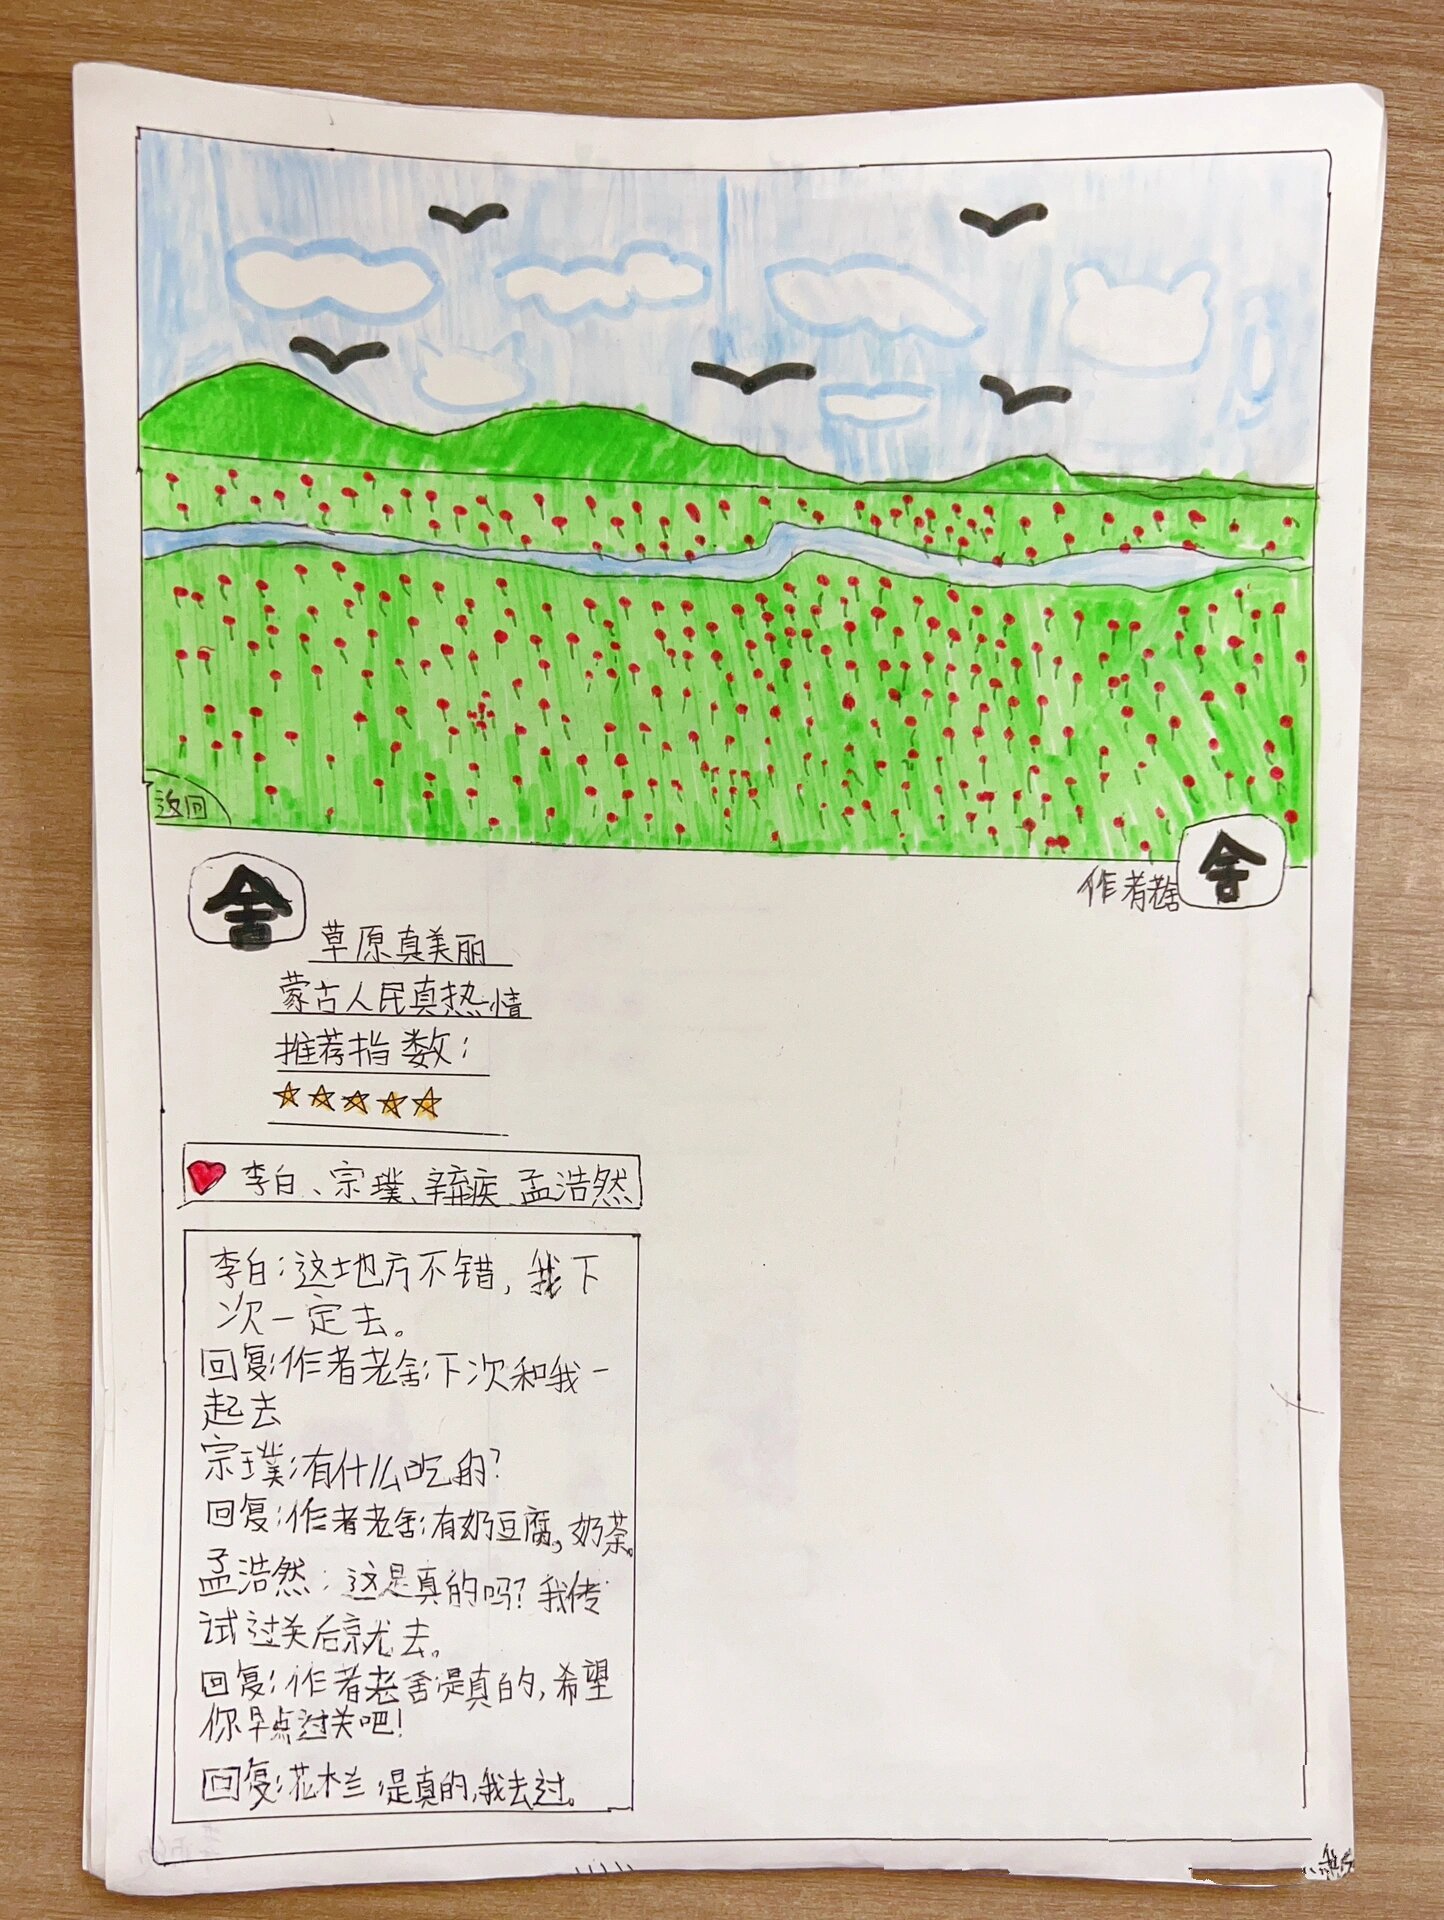 返回
作者老舍
舍
舍
草原真美丽
蒙古人民真热情
推荐指数：
李白、宗璞、辛弃疾、孟浩然
李白：这地方不错，我下
次一定去。
回复：作者老舍：下次和我一
起去
宗璞：有什么吃的？
回复：作者老舍：有奶豆腐，奶茶。
孟浩然：这是真的吗？我
试过关后就去。
回复：作者老舍：是真的，希望
你早点过关吧！
回复：花木兰：是真的，我去过。